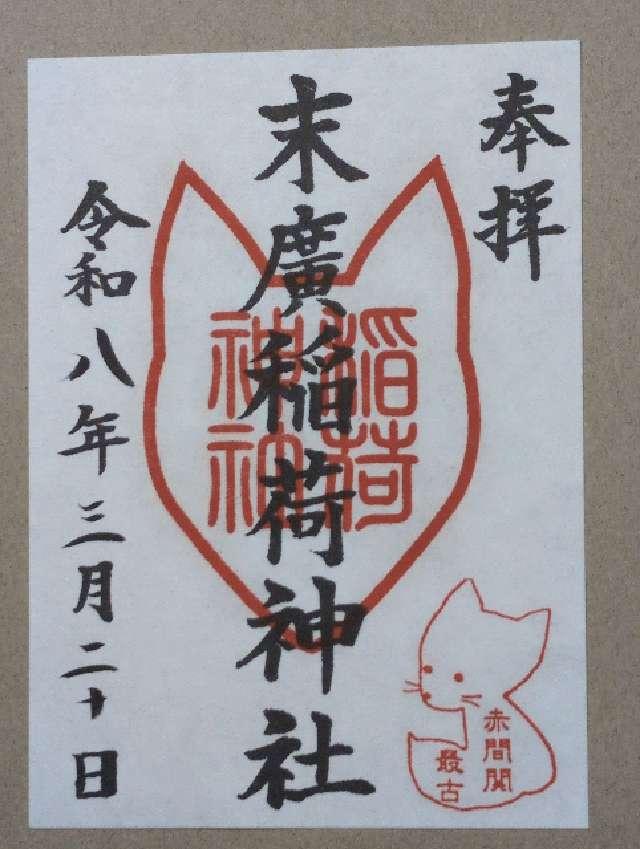 奉拝
末廣稲荷神社
令和八年三月二十日
稲荷
赤間関
最古